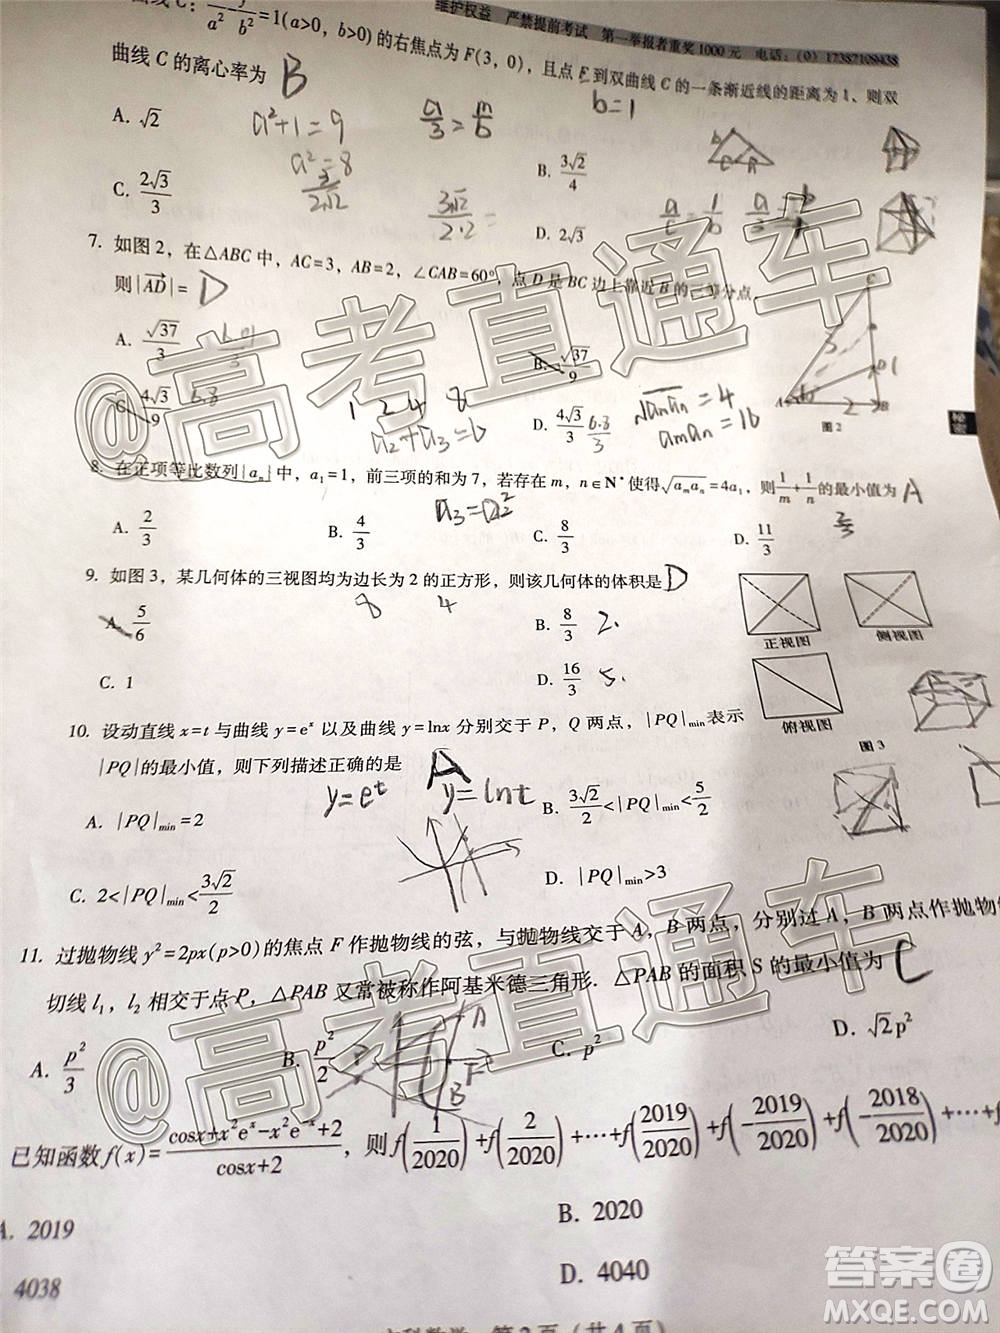 维护权益 严禁提前考试 第一举报者重奖1000元 电话:(0)17387109438
a² b² =1(a>0，b>0)的右焦点为F(3，0)，且点F到双曲线C的一条渐近线的距离为1、则双
曲线C的离心率为 B
b=1
A. √2
a²+1=9
a/3=m/b
B. 3√2/4
a²=8
3/2√2
C. 2√3/3
3√2/2·2=
D. 2√3
a/c=1/b
7. 如图2，在△ABC中，AC=3，AB=2，∠CAB=60°，点D是BC边上靠近B的三等分点，
则|AD|= D
A. √37/3
B. √37/9
C. 4√3/9 6.8
D. 4√3/3 6.8/3
1 2 4 8
a₂+a₃=6
√aₘaₙ=4
aₘaₙ=16
C
A
D
B
图2
秘密
8. 在正项等比数列{aₙ}中，a₁=1，前三项的和为7，若存在m，n∈N*使得√aₘaₙ=4a₁，则1/m+1/n的最小值为 A
A. 2/3
B. 4/3
C. 8/3
D. 11/3
9. 如图3，某几何体的三视图均为边长为2的正方形，则该几何体的体积是 D
A. 5/6
8 4
B. 8/3 2.
C. 1
D. 16/3 5.
正视图
侧视图
俯视图
图3
10. 设动直线x=t与曲线y=eˣ以及曲线y=lnx分别交于P，Q两点，|PQ|min表示
|PQ|的最小值，则下列描述正确的是 A
y=eᵗ y=lnt
A. |PQ|min=2
B. 3√2/2<|PQ|min<5/2
C. 2<|PQ|min<3√2/2
D. |PQ|min>3
11. 过抛物线y²=2px(p>0)的焦点F作抛物线的弦，与抛物线交于A，B两点，分别过A，B两点作抛物线
切线l₁，l₂相交于点P，△PAB又常被称作阿基米德三角形. △PAB的面积S的最小值为 C
A. p²/3
B. p²/2
C. p²
D. √2p²
P A F B
已知函数f(x)=(cosx+x²eˣ-x²e⁻ˣ+2)/(cosx+2)，则f(1/2020)+f(2/2020)+…+f(2019/2020)+f(-2019/2020)+f(-2018/2020)+…+f
A. 2019
B. 2020
4038
D. 4040
第2页（共4页）
@高考直通车
@高考直通车
答案圈
MXQE.COM